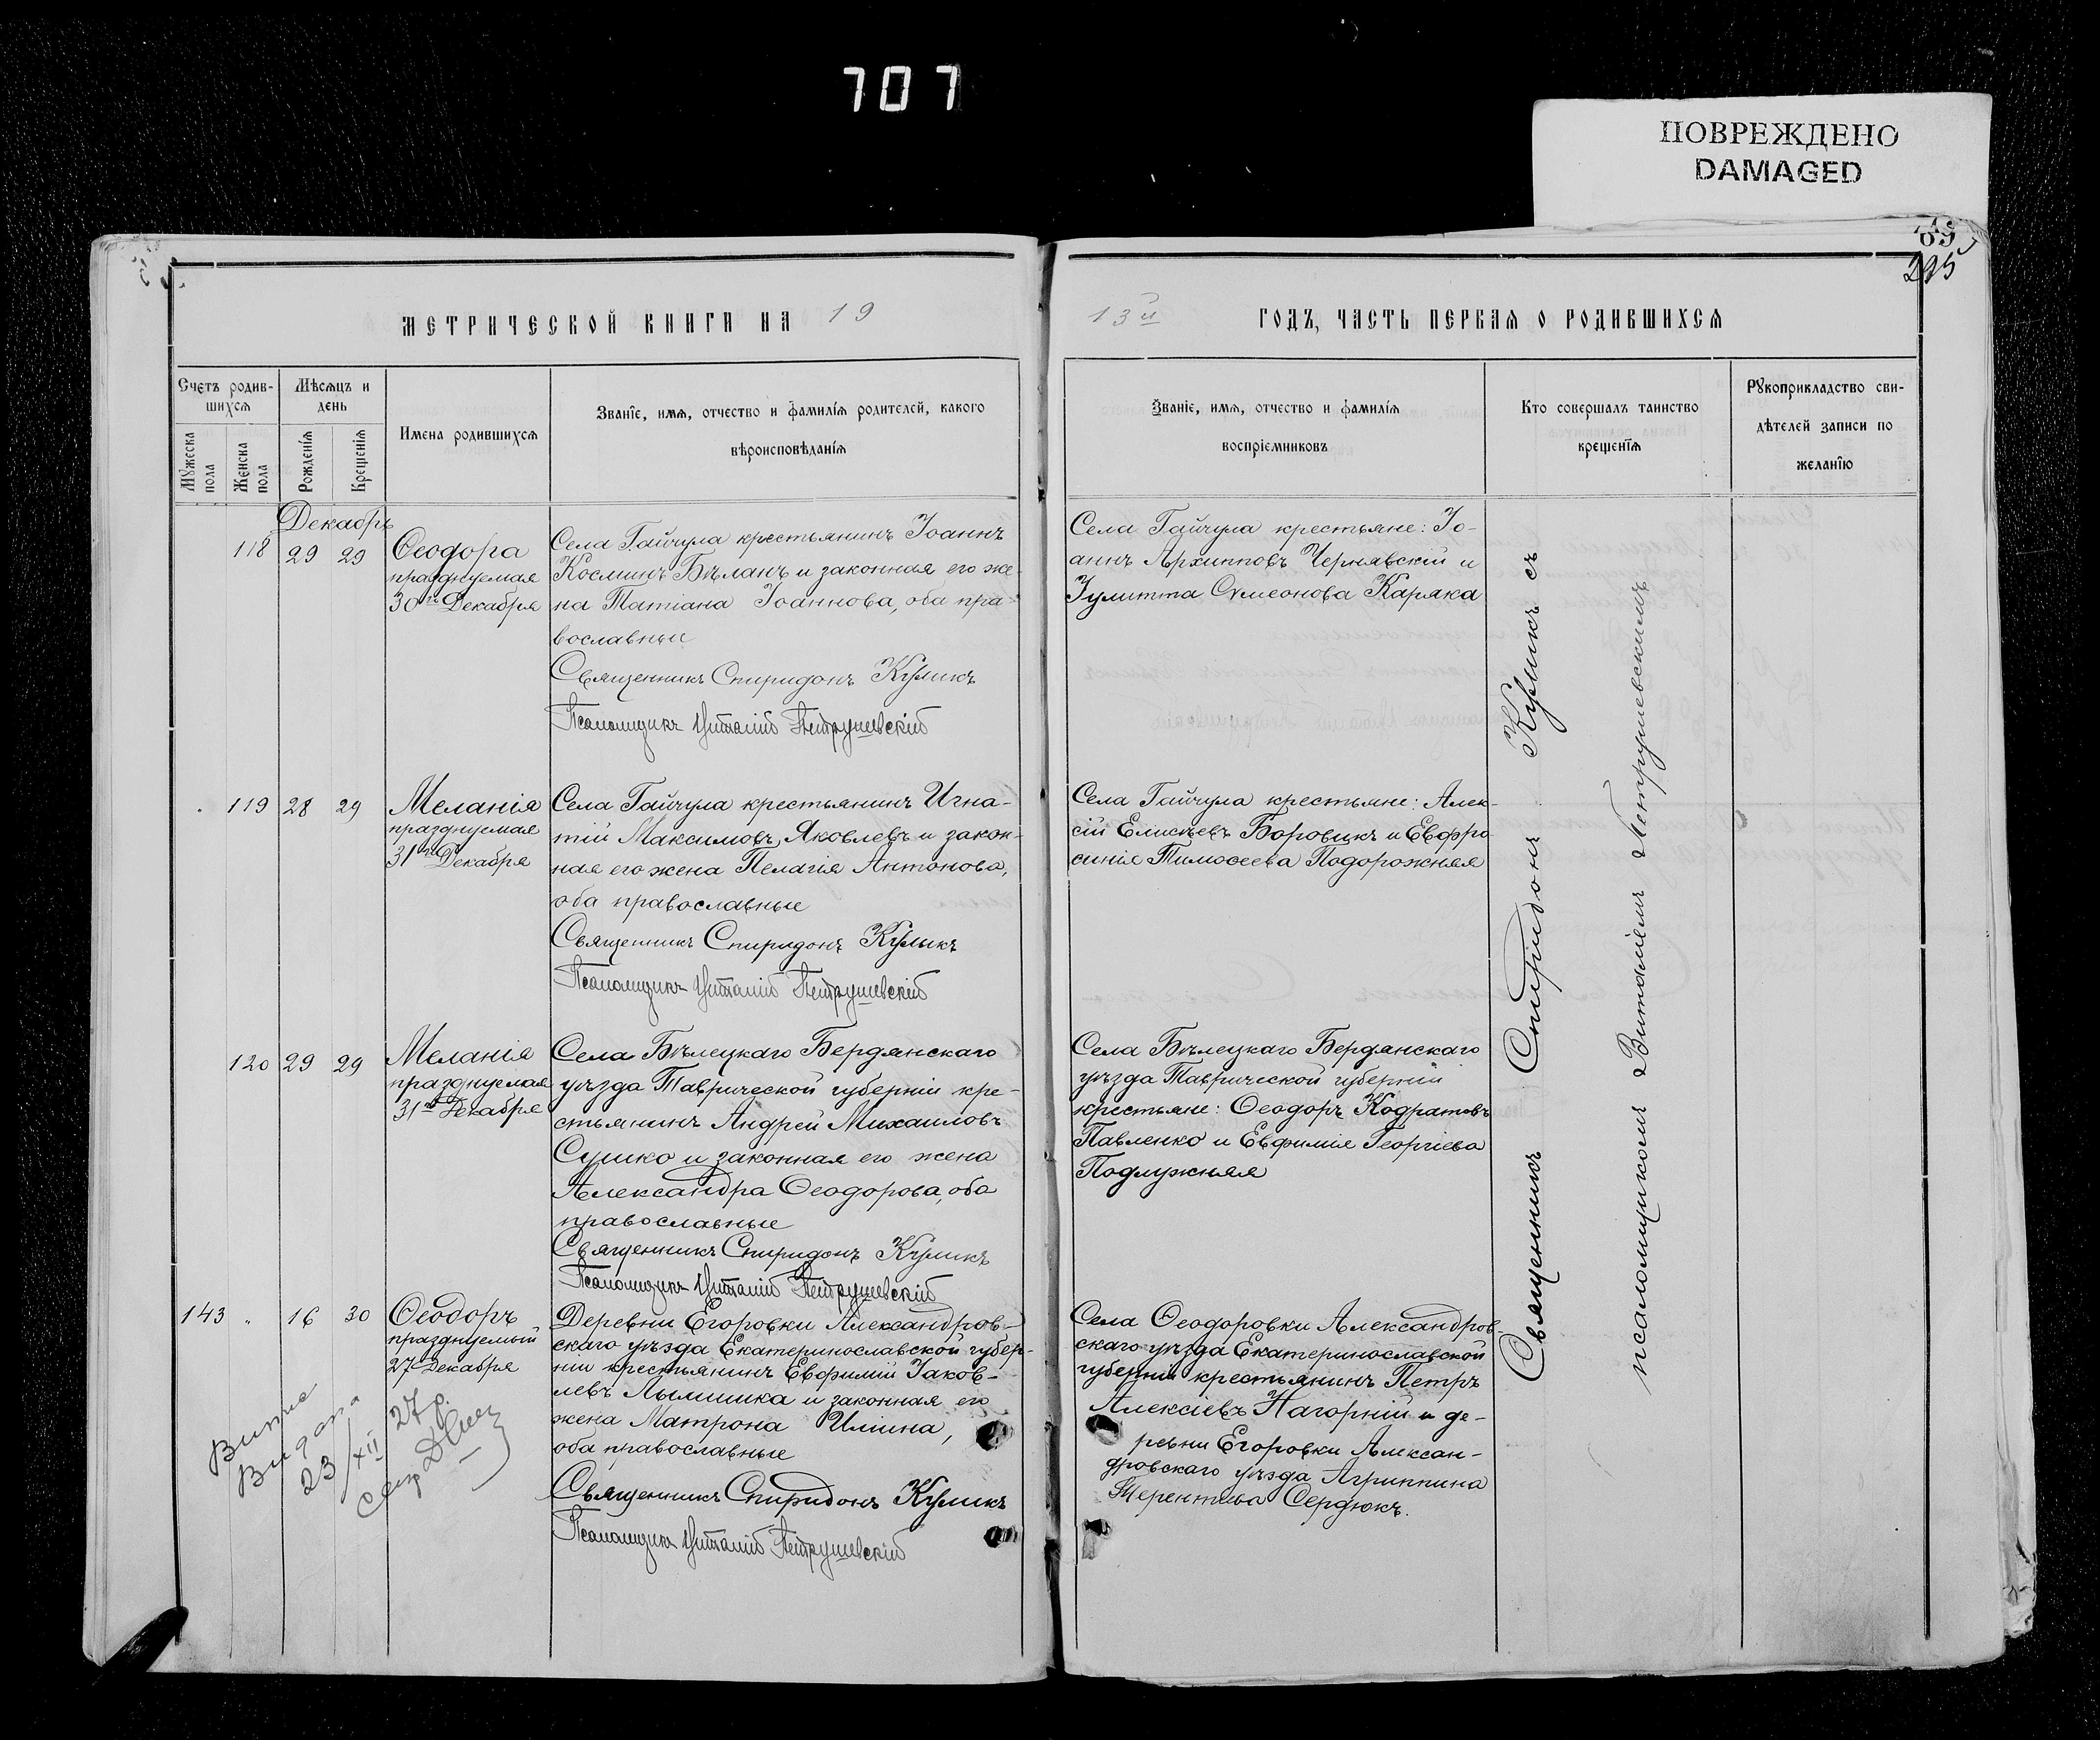 707
ПОВРЕЖДЕНО
DAMAGED
69
215
МЕТРИЧЕСКОЙ КНИГИ НА 19
13й ГОДЪ, ЧАСТЬ ПЕРВАЯ О РОДИВШИХСЯ
Счетъ родив-
шихся
Мужеска пола
Женска пола
Мѣсяцъ и
день
Рожденія
Крещенія
Имена родившихся
Званіе, имя, отчество и фамилія родителей, какого
вѣроисповѣданія
Званіе, имя, отчество и фамилія
воспріемниковъ
Кто совершалъ таинство
крещенія
Рукоприкладство сви-
дѣтелей записи по
желанію
Декабрь
118 29 29
Ѳеодора
празднуемая
30го Декабря
Села Гайчула крестьянинъ Іоаннъ
Косминъ Бѣланъ и законная его же-
на Татіана Іоаннова, оба пра-
вославные
Священникъ Спиридонъ Куликъ
Псаломщикъ Виталій Петрушевскій
Села Гайчула крестьяне: Іо-
аннъ Архипповъ Чернявскій и
Іулитта Сѵмеонова Каряка
119 28 29
Меланія
празднуемая
31го Декабря
Села Гайчула крестьянинъ Игна-
тій Максимовъ Яковлевъ и закон-
ная его жена Пелагія Антонова,
оба православные
Священникъ Спиридонъ Куликъ
Псаломщикъ Виталій Петрушевскій
Села Гайчула крестьяне: Алек-
сій Елисѣевъ Боровикъ и Евфро-
синія Тимоѳеева Подорожняя
120 29 29
Меланія
празднуемая
31го Декабря
Села Бѣлецкаго Бердянскаго
уѣзда Таврической губерніи кре-
стьянинъ Андрей Михаиловъ
Сушко и законная его жена
Александра Ѳеодорова, оба
православные
Священникъ Спиридонъ Куликъ
Псаломщикъ Виталій Петрушевскій
Села Бѣлецкаго Бердянскаго
уѣзда Таврической губерніи
крестьяне: Ѳеодоръ Кодратовъ
Павленко и Евфимія Георгіева
Подлужняя
143 " 16 30
Ѳеодоръ
празднуемый
27 Декабря
Деревни Егоровки Александров-
скаго уѣзда Екатеринославской губер-
ніи крестьянинъ Евфимій Іаков-
левъ Лымишка и законная его
жена Матрона Иліина,
оба православные
Священникъ Спиридонъ Куликъ
Псаломщикъ Виталій Петрушевскій
Села Ѳеодоровки Александров-
скаго уѣзда Екатеринославской
губерніи крестьянинъ Петръ
Алексіевъ Нагорній и де-
ревни Егоровки Алексан-
дровскаго уѣзда Агриппина
Терентіева Сердюкъ.
Видана
23/XII 27 р.
Священникъ Спиридонъ Куликъ съ
псаломщикомъ Виталіемъ Петрушевскимъ